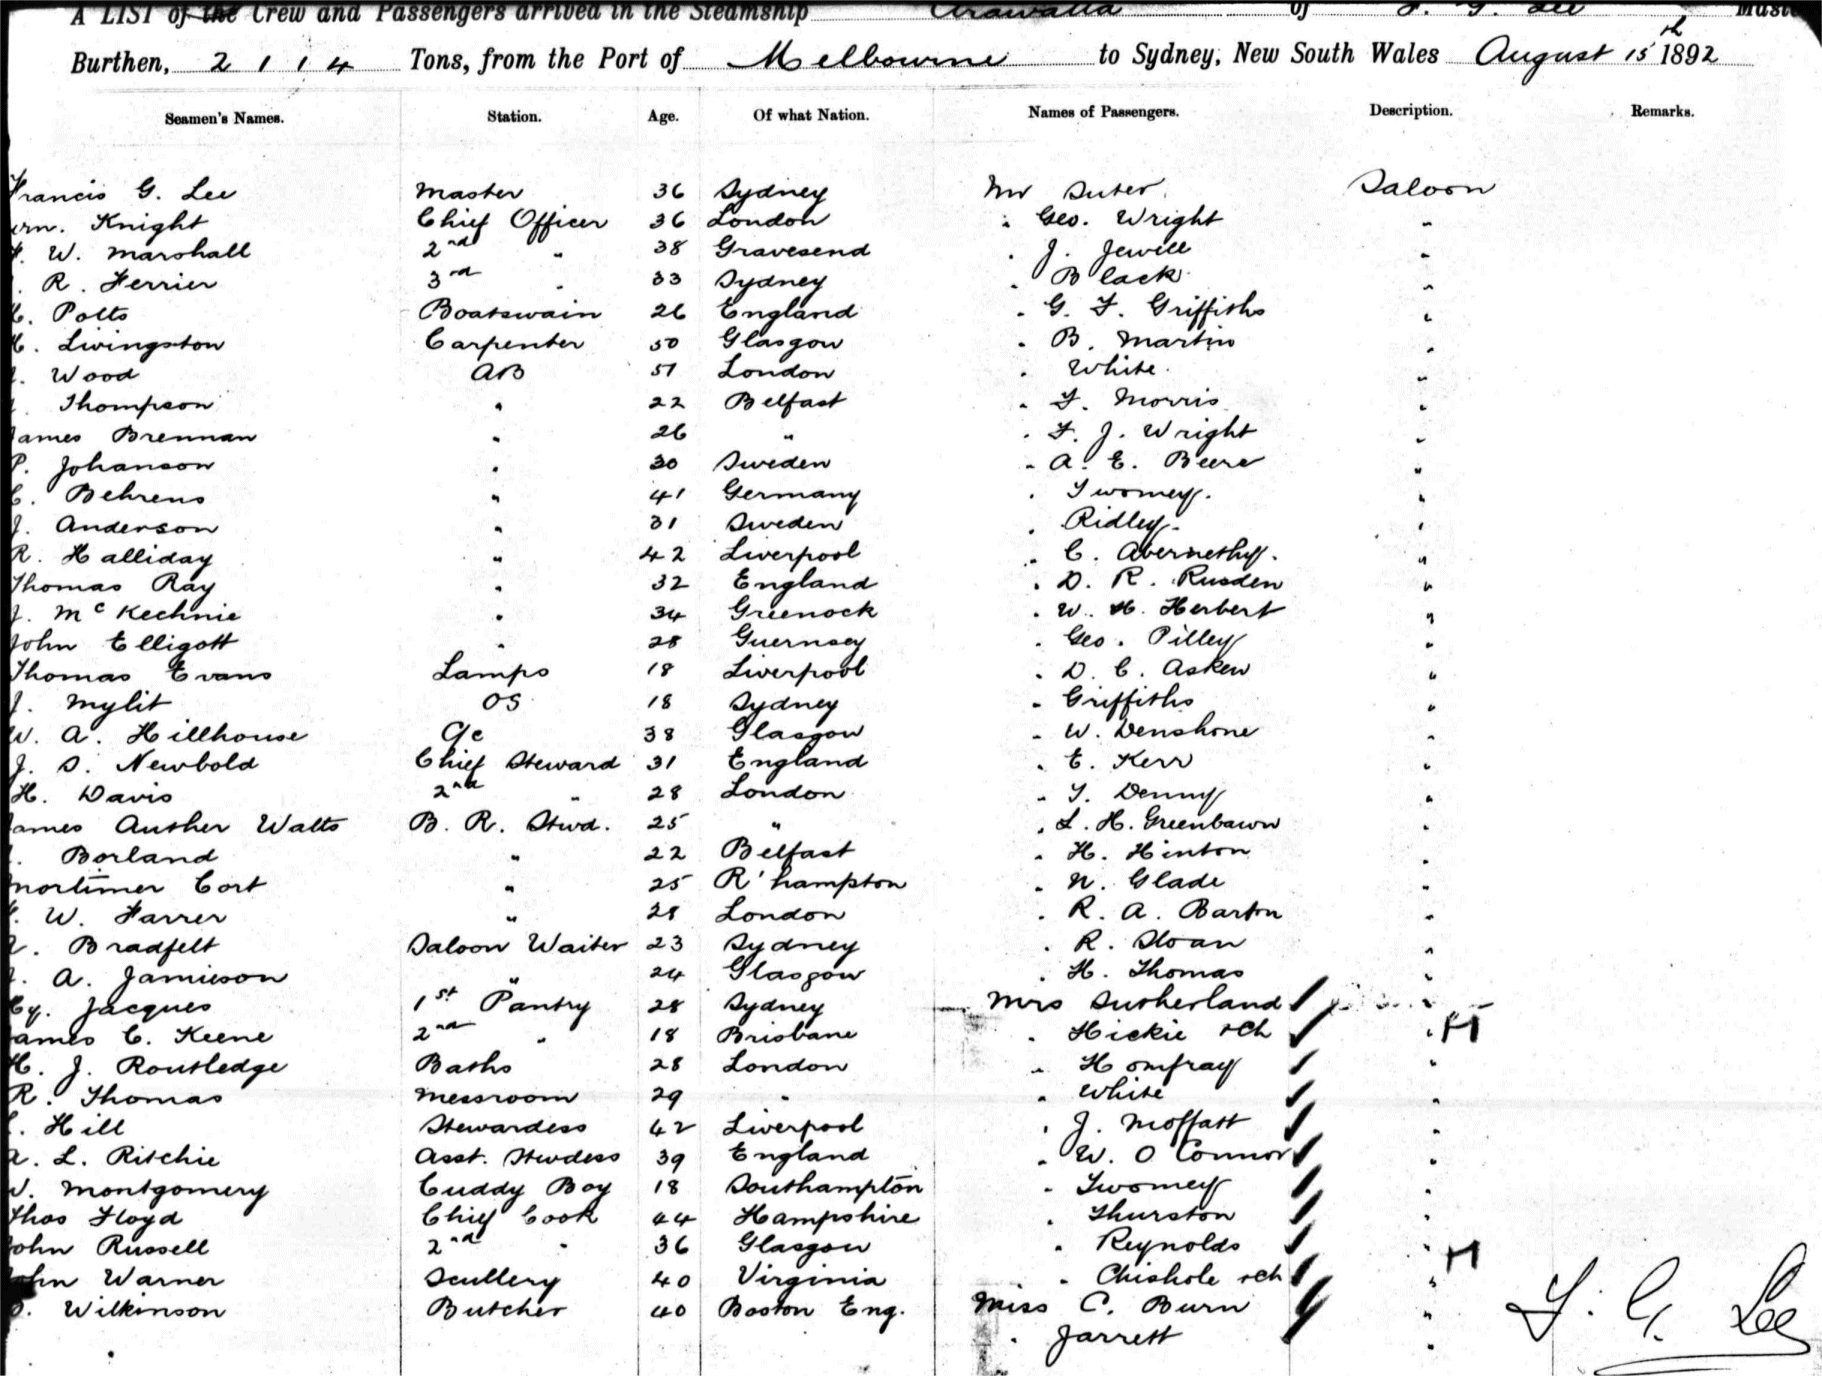 A LIST of the Crew and Passengers arrived in the Steamship Arawatta of F. G. Lee
Burthen, 2114 Tons, from the Port of Melbourne to Sydney, New South Wales August 15th 1892
Seamen's Names. Station. Age. Of what Nation. Names of Passengers. Description. Remarks.
Francis G. Lee Master 36 Sydney Mr Suter Saloon
Knight Chief Officer 36 London " Geo. Wright "
W. Marshall 2nd " 38 Gravesend " J. Jewell "
R. Ferrier 3rd " 33 Sydney " Black "
Potts Boatswain 26 England " G. F. Griffiths "
Livingston Carpenter 50 Glasgow " B. Martin "
Wood AB 51 London " White "
Thompson " 22 Belfast " F. Morris "
James Brennan " 26 " " F. J. Wright "
P. Johanson " 30 Sweden " A. E. Beere "
C. Behrens " 41 Germany " Twomey "
J. Anderson " 31 Sweden " Ridley "
R. Halliday " 42 Liverpool " C. Abernethy "
Thomas Ray " 32 England " D. R. Rusden "
J. McKechnie " 34 Greenock " W. H. Herbert "
John Elligott " 28 Guernsey " Geo. Pilley "
Thomas Evans Lamps 18 Liverpool " D. C. Askew "
J. Mylit OS 18 Sydney " Griffiths "
W. A. Hillhouse 38 Glasgow " W. Denshone "
J. S. Newbold Chief Steward 31 England " E. Kerr "
H. Davis 2nd " 28 London " T. Denny "
James Auther Watts B. R. Stwd. 25 " " L. H. Greenbawn "
Borland " 22 Belfast " H. Hinton "
Mortimer Cort " 25 R'hampton " N. Glade "
W. Farrer " 28 London " R. A. Barton "
Bradfelt Saloon Waiter 23 Sydney " R. Sloan "
A. Jamieson " 24 Glasgow " H. Thomas "
Hy. Jacques 1st Pantry 28 Sydney Mrs Sutherland "
James C. Keene 2nd " 18 Brisbane " Hickie + ch "
H. J. Routledge Baths 28 London " Homfray "
R. Thomas Messroom 29 " " White "
Hill Stewardess 42 Liverpool " J. Moffatt "
A. L. Ritchie Asst. Stwdess 39 England " W. O Connor "
W. Montgomery Cuddy Boy 18 Southampton " Twomey "
Thos Floyd Chief Cook 44 Hampshire " Thurston "
John Russell 2nd " 36 Glasgow " Reynolds "
John Warner Scullery 40 Virginia " Chishole + ch "
Wilkinson Butcher 40 Boston Eng. Miss C. Burn "
" Jarrett "
F. G. Lee